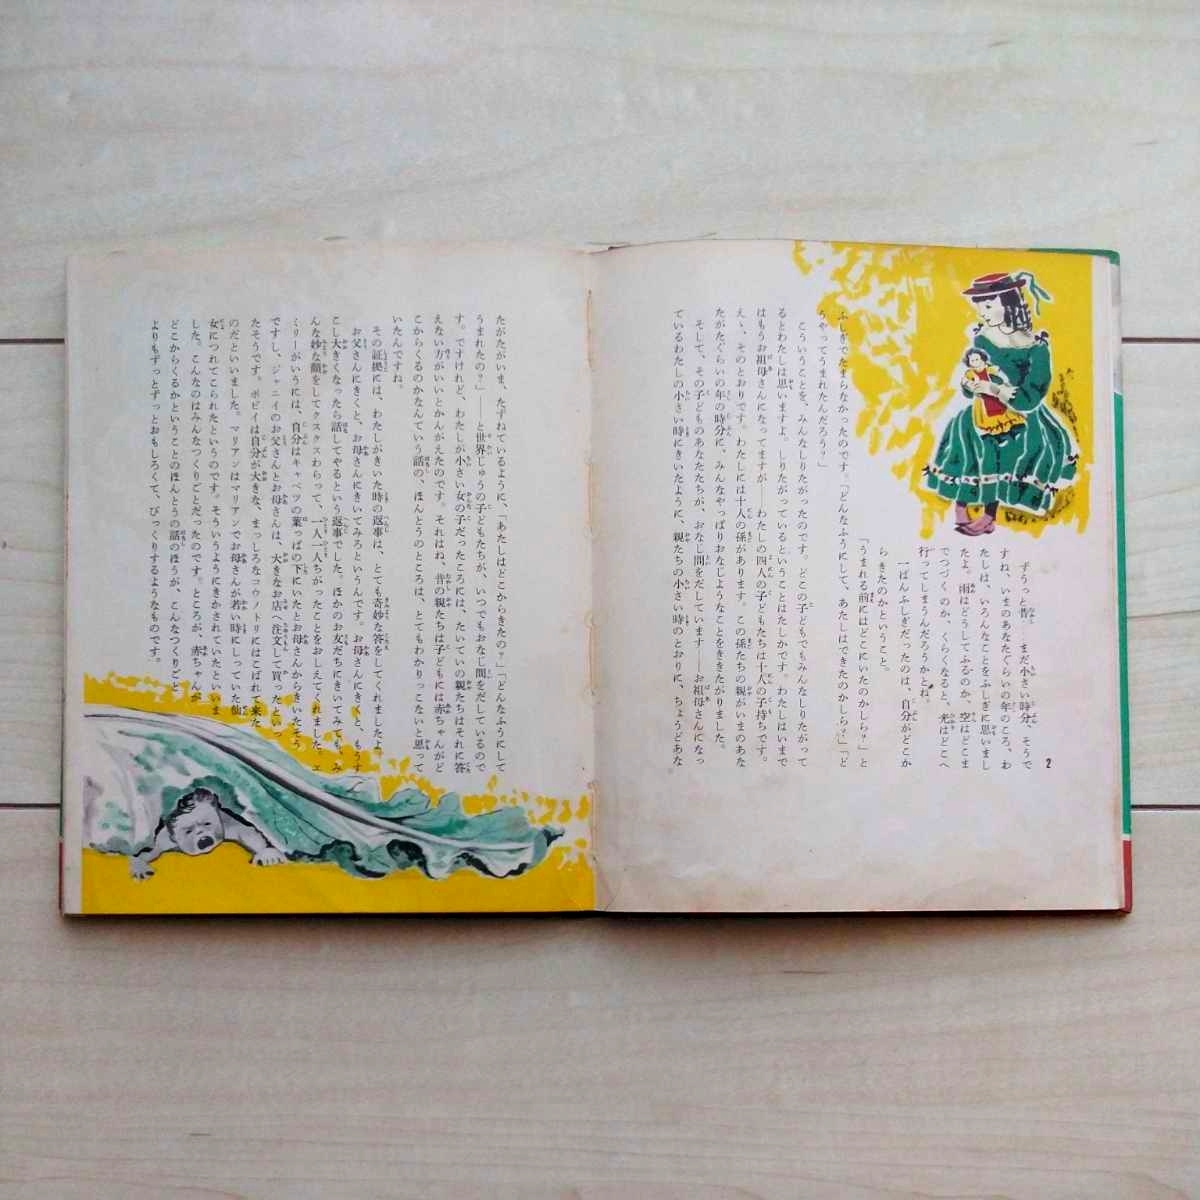 2
ずうっと昔、まだ小さい時分、そうで
すね、いまのあなたぐらいの年のころ、わ
たしは、いろんなことをふしぎに思いまし
たよ。雨はどうしてふるのか、空はどこま
でつづくのか、くらくなると、光はどこへ
行ってしまうんだろうかとね。
一ばんふしぎだったのは、自分がどこか
らきたのかということ。
「うまれる前にはどこにいたのかしら？」と
ふしぎでたまらなかったのです。「どんなふうにして、あたしはできたのかしら？」「ど
うやってうまれたんだろう？」
こういうことを、みんなしりたがったのです。どこの子どもでもみんなしりたがって
るとわたしは思いますよ。しりたがっているということはたしかです。わたしはいまで
はもうお祖母さんになってますが――わたしの四人の子どもたちは十人の子持ちです。
ええ、そのとおりです。わたしには十人の孫があります。この孫たちの親がいまのあな
たがたぐらいの年の時分に、みんなやっぱりおなじようなことをききたがりました。
そして、その子どものあなたたちが、おなじ問をだしています――お祖母さんになっ
ているわたしの小さい時にきいたように、親たちの小さい時のとおりに、ちょうどあな
たがたがいま、たずねているように、「あたしはどこからきたの？」「どんなふうにして
うまれたの？」――と世界じゅうの子どもたちが、いつでもおなじ問をだしているので
す。ですけれど、わたしが小さい女の子だったころには、たいていの親たちはそれに答
えない方がいいとかんがえたのです。それはね、昔の親たちは子どもには赤ちゃんがど
こからくるのかなんていう話の、ほんとうのところは、とてもわかりっこないと思って
いたんですね。
その証拠には、わたしがきいた時の返事は、とても奇妙な答をしてくれましたよ。
お父さんにきくと、お母さんにきいてみろというんです。お母さんにきくと、もうす
こし大きくなったら話してやるという返事でした。ほかのお友だちにきいてみても、み
んな妙な顔をしてクスクスわらって、一人一人ちがったことをおしえてくれました。エ
ミリーがいうには、自分はキャベツの葉っぱの下にいたとお母さんからきいたそう
ですし、ジャニイのお父さんとお母さんは、大きなお店へ注文して買ったといっ
たそうです。ボビイは自分が大きな、まっしろなコウノトリにはこばれて来た
のだといいました。マリアンはマリアンでお母さんが若い時にしっていた仙
女につれてこられたというのです。そういうようにきかされていたといいま
した。こんなのはみんなつくりごとだったのです。ところが、赤ちゃんが
どこからくるかということのほんとうの話のほうが、こんなつくりごと
よりもずっとずっとおもしろくて、びっくりするようなものです。